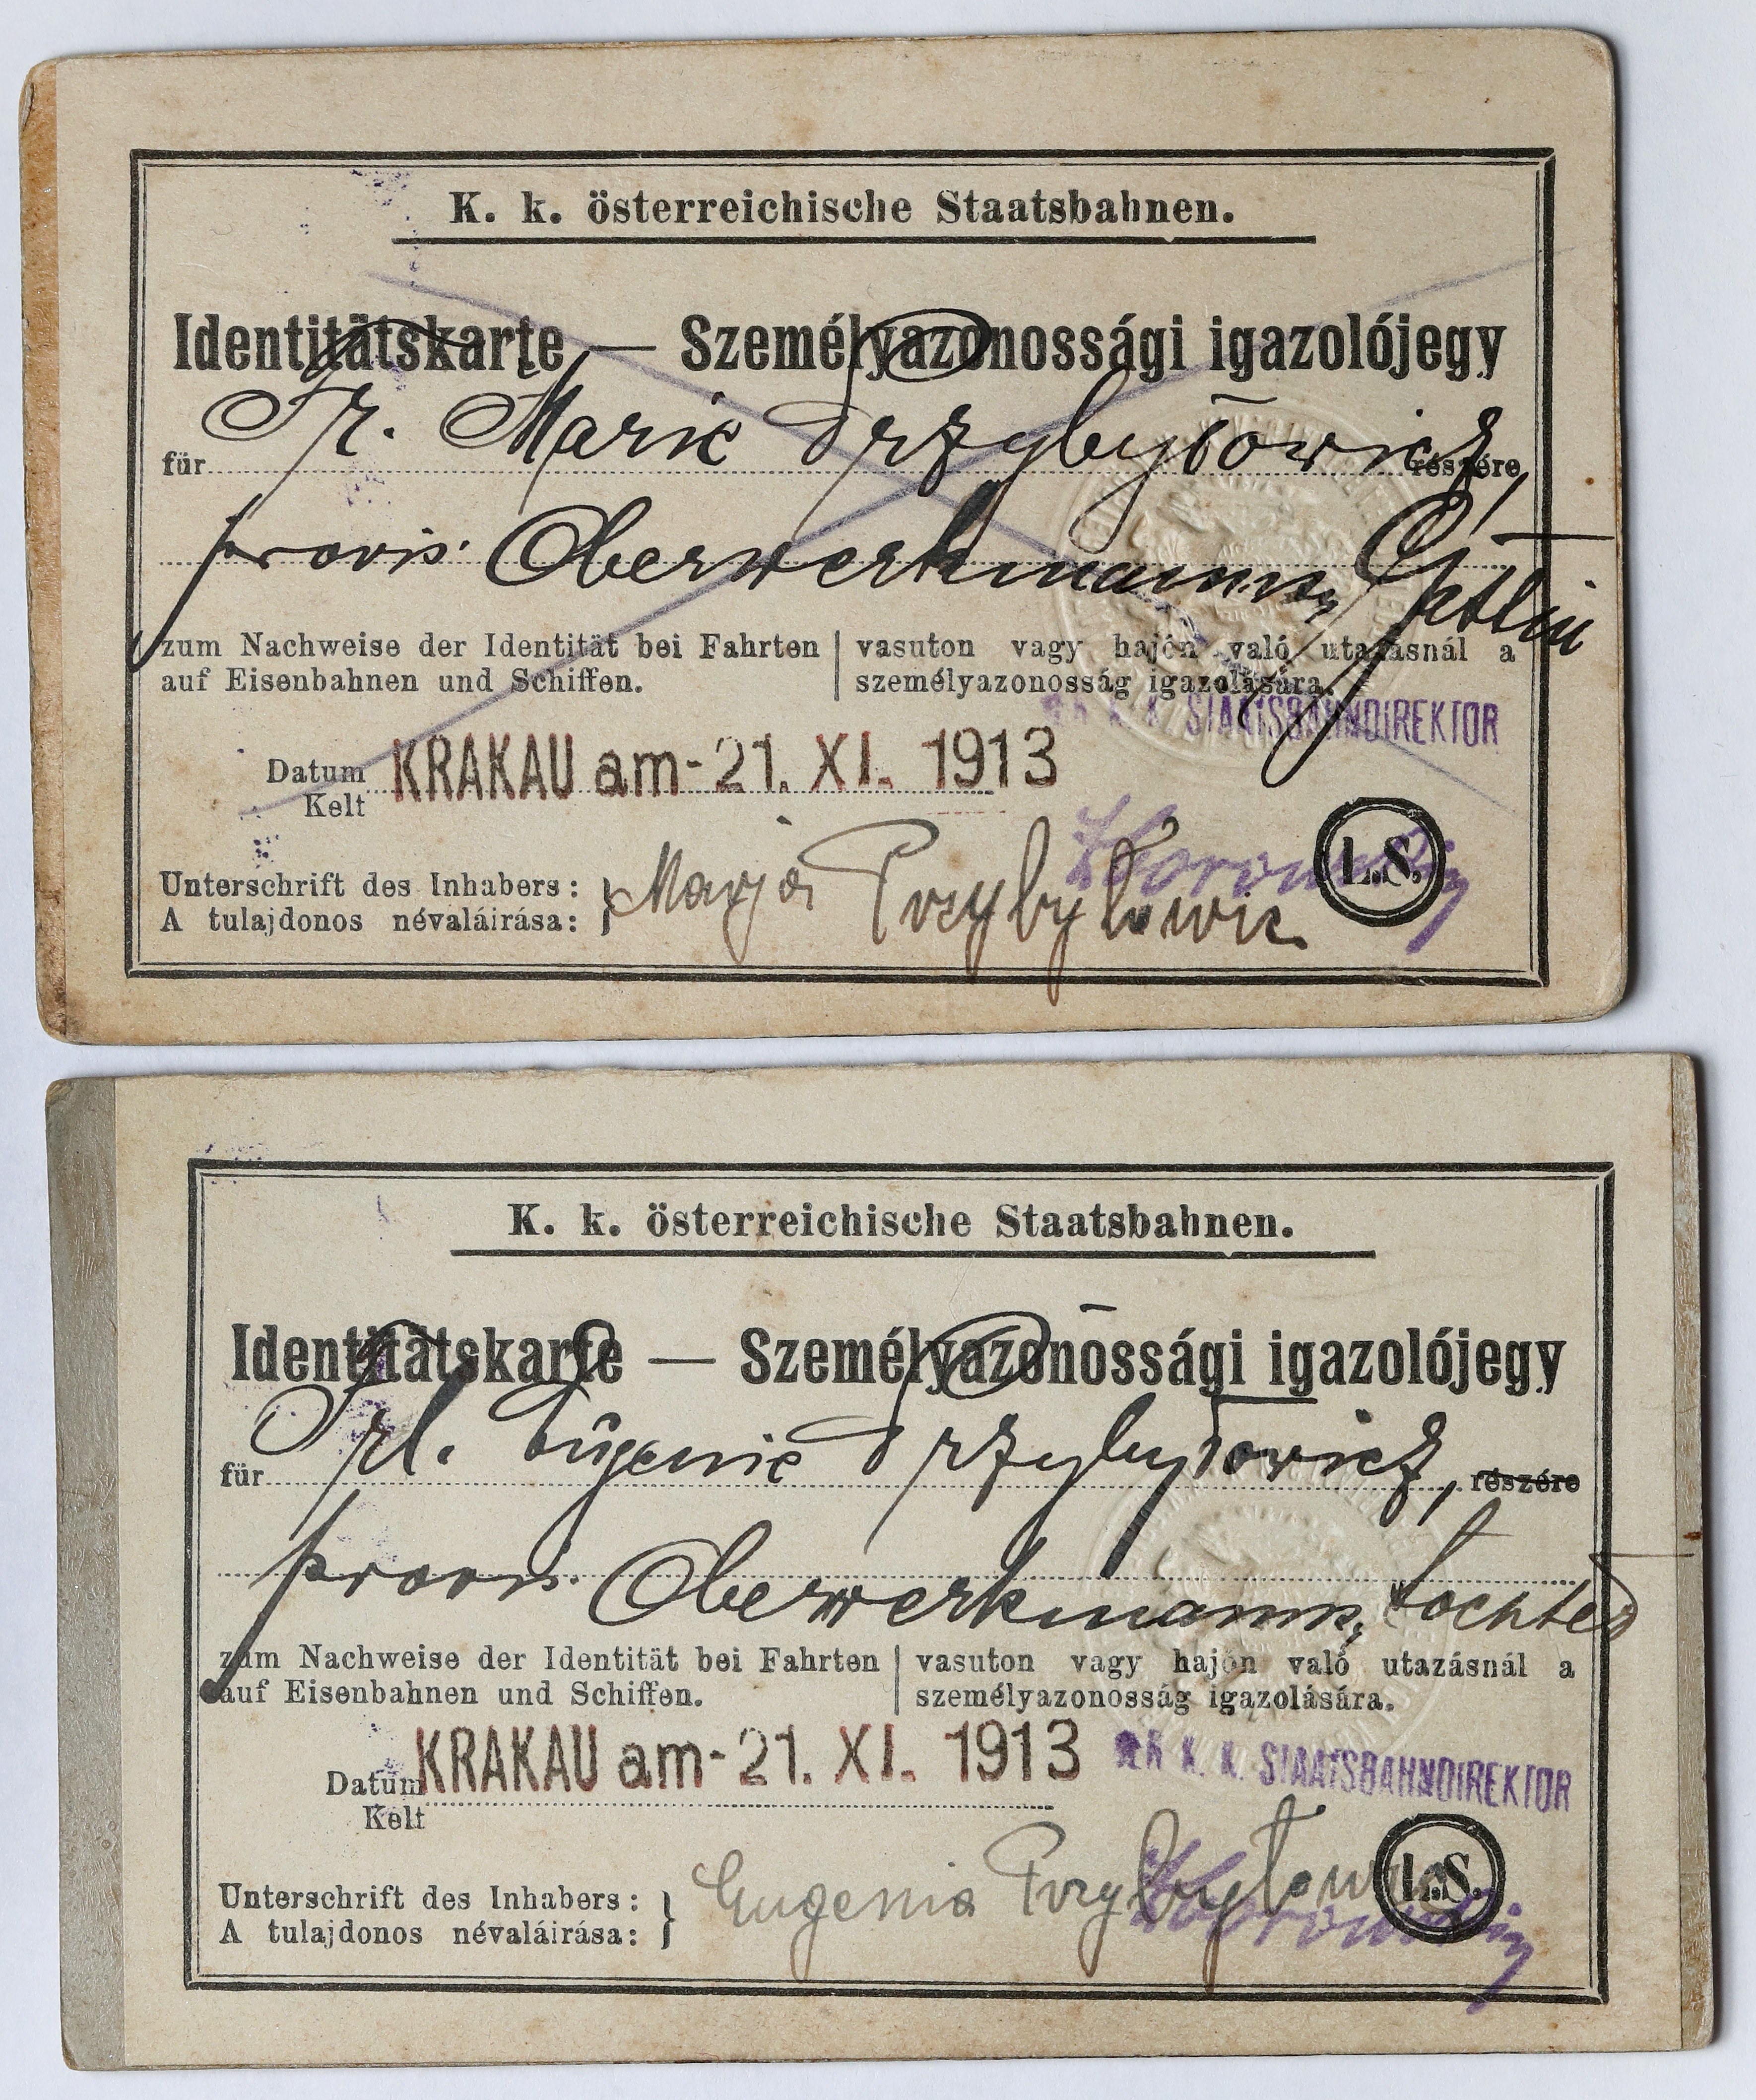 K. k. österreichische Staatsbahnen.
Identitätskarte — Személyazonossági igazolójegy
für Fr. Marie Przybyłowicz, részére
provis. Oberwerkmanns Gattin
zum Nachweise der Identität bei Fahrten
auf Eisenbahnen und Schiffen.
vasuton vagy hajón való utazásnál a
személyazonosság igazolására.
K. K. STAATSBAHNDIREKTOR
Datum KRAKAU am - 21. XI. 1913
Kelt
Unterschrift des Inhabers:
A tulajdonos névaláirása:
Marja Przybyłowic
L.S.
K. k. österreichische Staatsbahnen.
Identitätskarte — Személyazonossági igazolójegy
für Frl. Eugenie Przybyłowicz, részére
provis. Oberwerkmanns, tochter
zum Nachweise der Identität bei Fahrten
auf Eisenbahnen und Schiffen.
vasuton vagy hajón való utazásnál a
személyazonosság igazolására.
Datum KRAKAU am - 21. XI. 1913
Kelt
K. K. STAATSBAHNDIREKTOR
Unterschrift des Inhabers:
A tulajdonos névaláirása:
Eugenia
L.S.